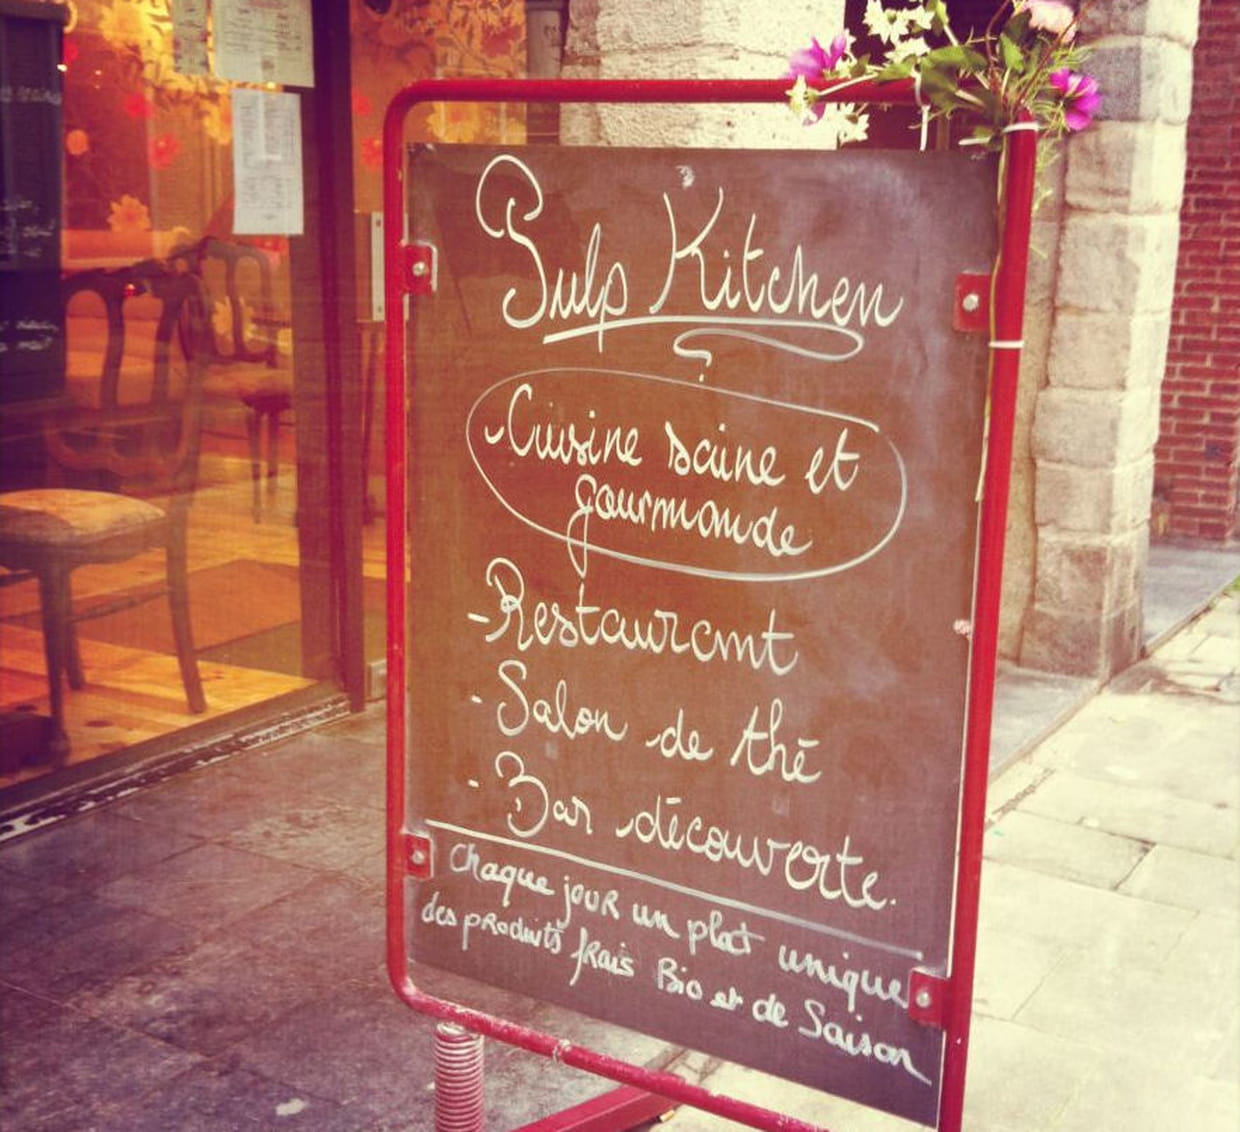 Pulp Kitchen
Cuisine saine et
gourmande
-Restaurant
- Salon de thé
- Bar découverte.
Chaque jour un plat unique
des produits frais Bio et de Saison